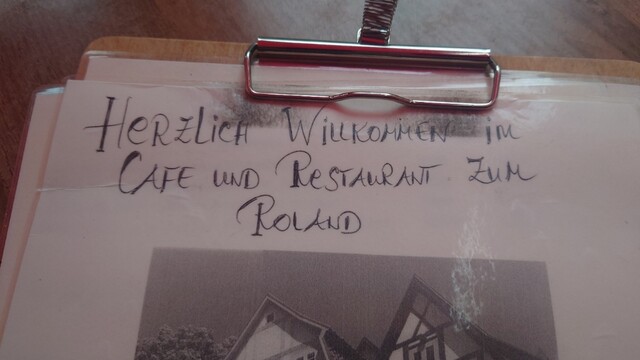 HERZLICH WILLKOMMEN IM
CAFE UND RESTAURANT ZUM
ROLAND